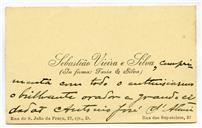 Sebastião Vieira e Silva, cumpri
(Da firma: Faria & Silva)
menta com todo o enthusiasmo
o brilhante orador e grande ci
dadão Antonio José d'Almei
Rua de S. João da Praça, 17, r/c, D.
Rua dos Sapateiros, 21